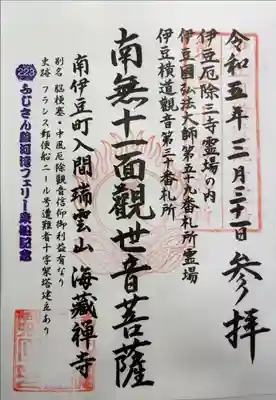 令和五年三月三十一日 参拝
伊豆厄除三寺霊場の内
伊豆國弘法大師第五十九番札所霊場
伊豆横道観音第三十番札所
南無十一面觀世音菩薩
南伊豆町入間瑞雲山 海蔵禅寺
別名 脳梗塞・中風厄除観音信仰御利益有なり
史跡 フランス郵便船ニール号遭難者十字架塔建立あり
223
ふじさん駿河湾フェリー乗船記念